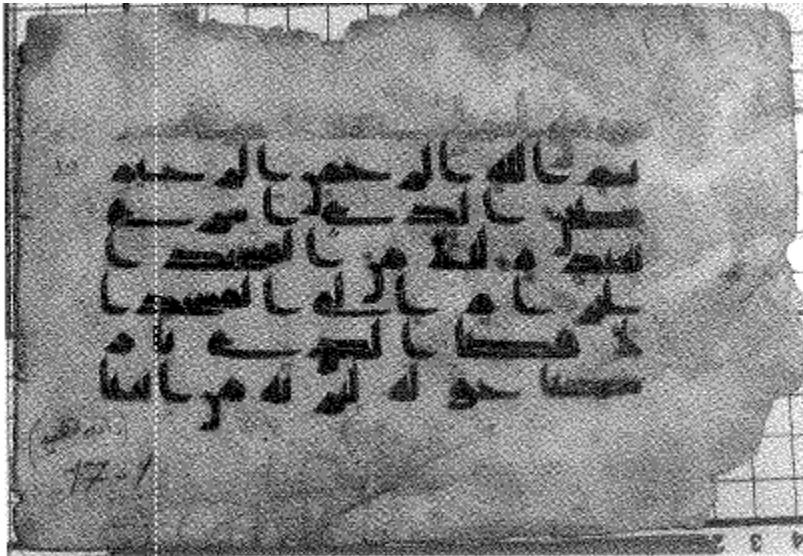 بسم الله الرحمن الرحيم
سبحن الذى اسرى
بعبده ليلا من المسجد ا
لحرام الى المسجد ا
لاقصا الذى بار
كنا حوله لنريه من ايتنا
17-1